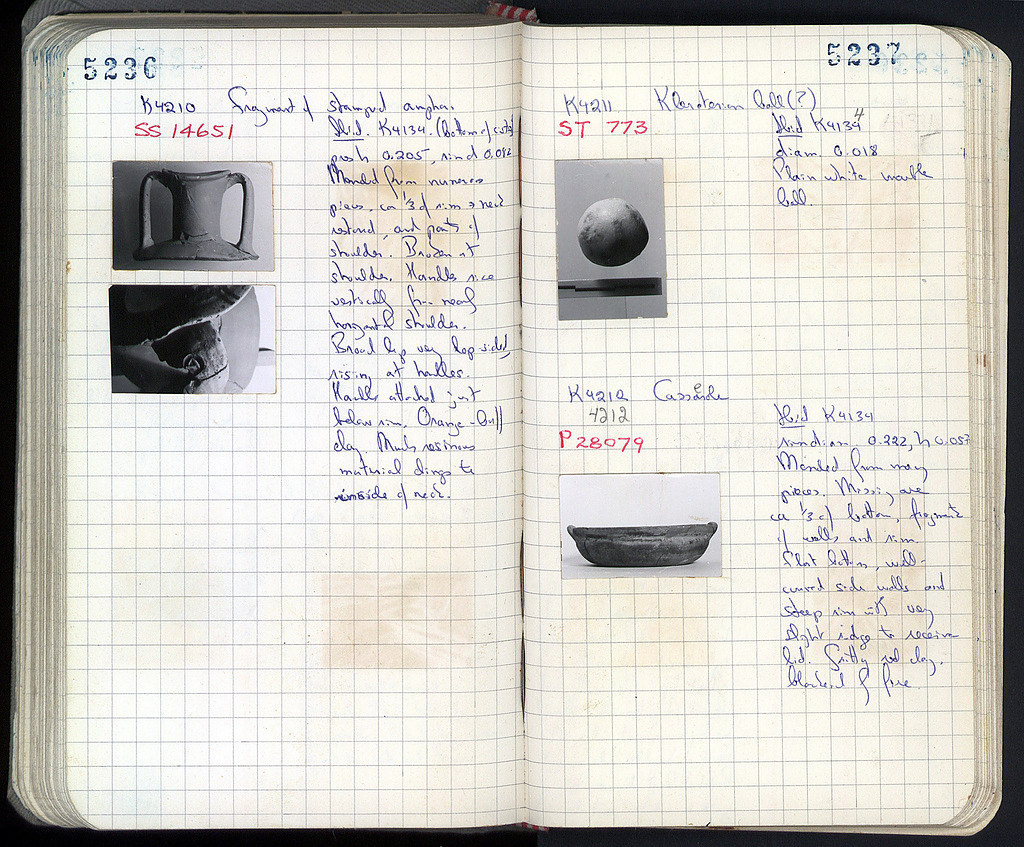 5236
K4210 Fragment of stamped amphora
SS 14651
Ibid. K4134. (bottom of cistern)
presh 0.205, rim d 0.092
Mended from numerous
pieces. ca 1/3 of rim & neck
restored, and parts of
shoulder. Broken at
shoulder. Handles rise
vertically from nearly
horizontal shoulder.
Broad lip very lop-sided,
rising at handles.
Handles attached just
below rim. Orange-buff
clay. Much resinous
material clings to
inside of neck.
5237
K4211 Kleroterion ball (?)
ST 773
Ibid K4134
diam. 0.018
Plain white marble
ball.
K4212 Casserole
4212
P 28079
Ibid K4134
rim diam. 0.222, h 0.057
Mended from many
pieces. Missing are
ca 1/3 of bottom, fragments
of walls and rim.
Flat bottom, well-
curved side walls and
steep rim with very
slight ridge to receive
lid. Gritty red clay,
blackened by fire.